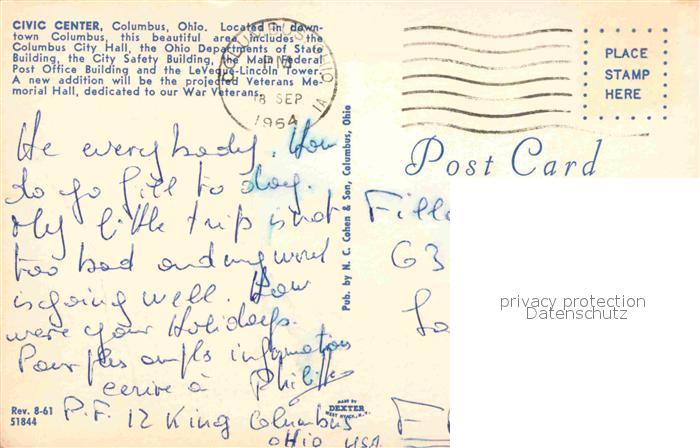 CIVIC CENTER, Columbus, Ohio. Located in down-
town Columbus, this beautiful area includes the
Columbus City Hall, the Ohio Departments of State
Building, the City Safety Building, the Main Federal
Post Office Building and the LeVeque-Lincoln Tower.
A new addition will be the projected Veterans Me-
morial Hall, dedicated to our War Veterans.
COLUMBUS OHIO
PM
18 SEP
1964
PLACE
STAMP
HERE
Post Card
He everybody. How
do yo fill to day.
My little trip is not
too bad and my word
is going well. How
were your Holidays.
Pour plus amples informations
ecrire à Philippe
P.F. 12 King Columbus
OHIO USA
Pub. by N. C. Cohen & Son, Columbus, Ohio
63
privacy protection
Datenschutz
Rev. 8-61
51844
MADE BY
DEXTER
WEST NYACK, N.Y.